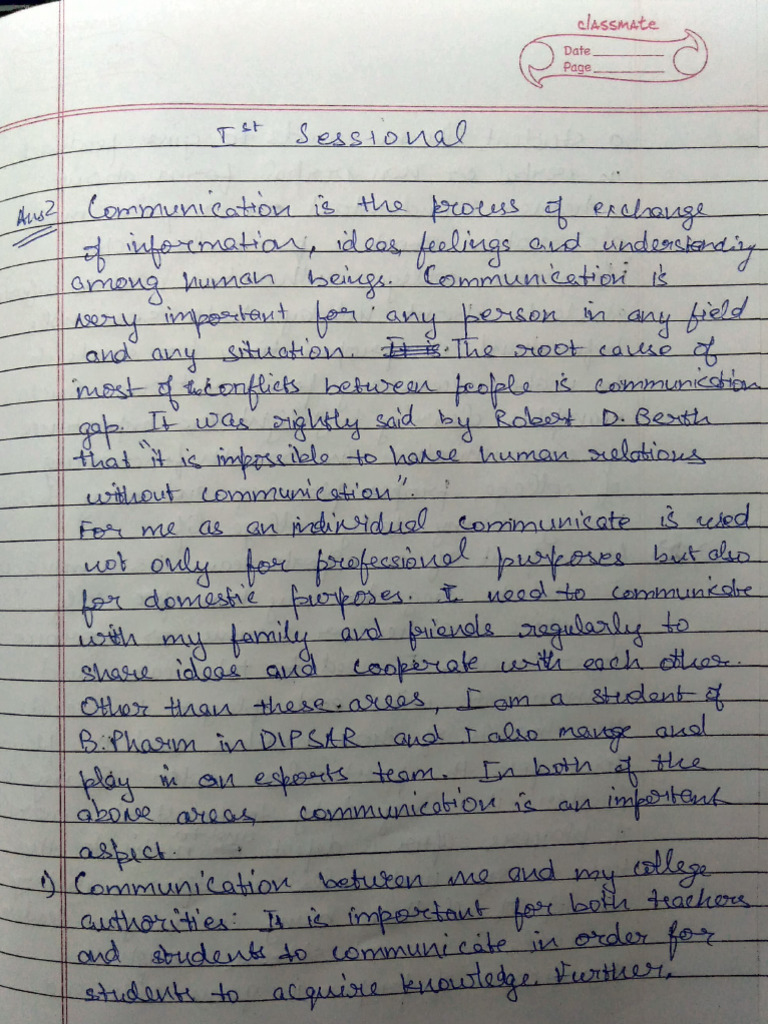 classmate
Date
Page
Ist Sessional
Ans2 Communication is the process of exchange
of information, ideas, feelings and understanding
among human beings. Communication is
very important for any person in any field
and any situation. It is. The root cause of
most of the conflicts between people is communication
gap. It was rightly said by Robert D. Berth
that "it is impossible to have human relations
without communication".
For me as an individual communicate is used
not only for professional purposes but also
for domestic purposes. I need to communicate
with my family and friends regularly to
share ideas and cooperate with each other.
Other than these areas, I am a student of
B. Pharm in DIPSAR and I also mange and
play in an esports team. In both of the
above areas, communication is an important
aspect.
1) Communication between me and my college
authorities: It is important for both teachers
and students to communicate in order for
students to acquire knowledge. Further,